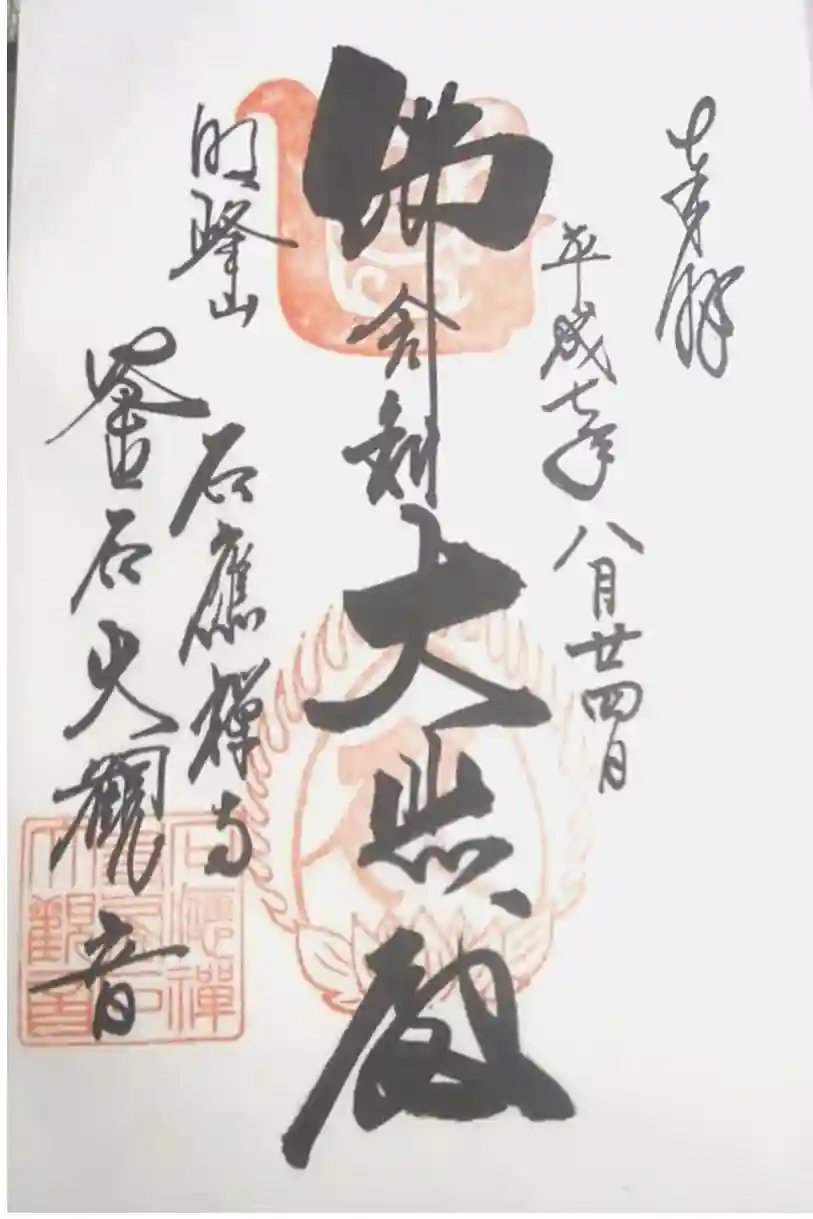 奉拝
平成七年八月廿四日
佛舎利大照殿
明峰山
石應禪寺
釜石大觀音
石應禪
寺釜石
大觀音